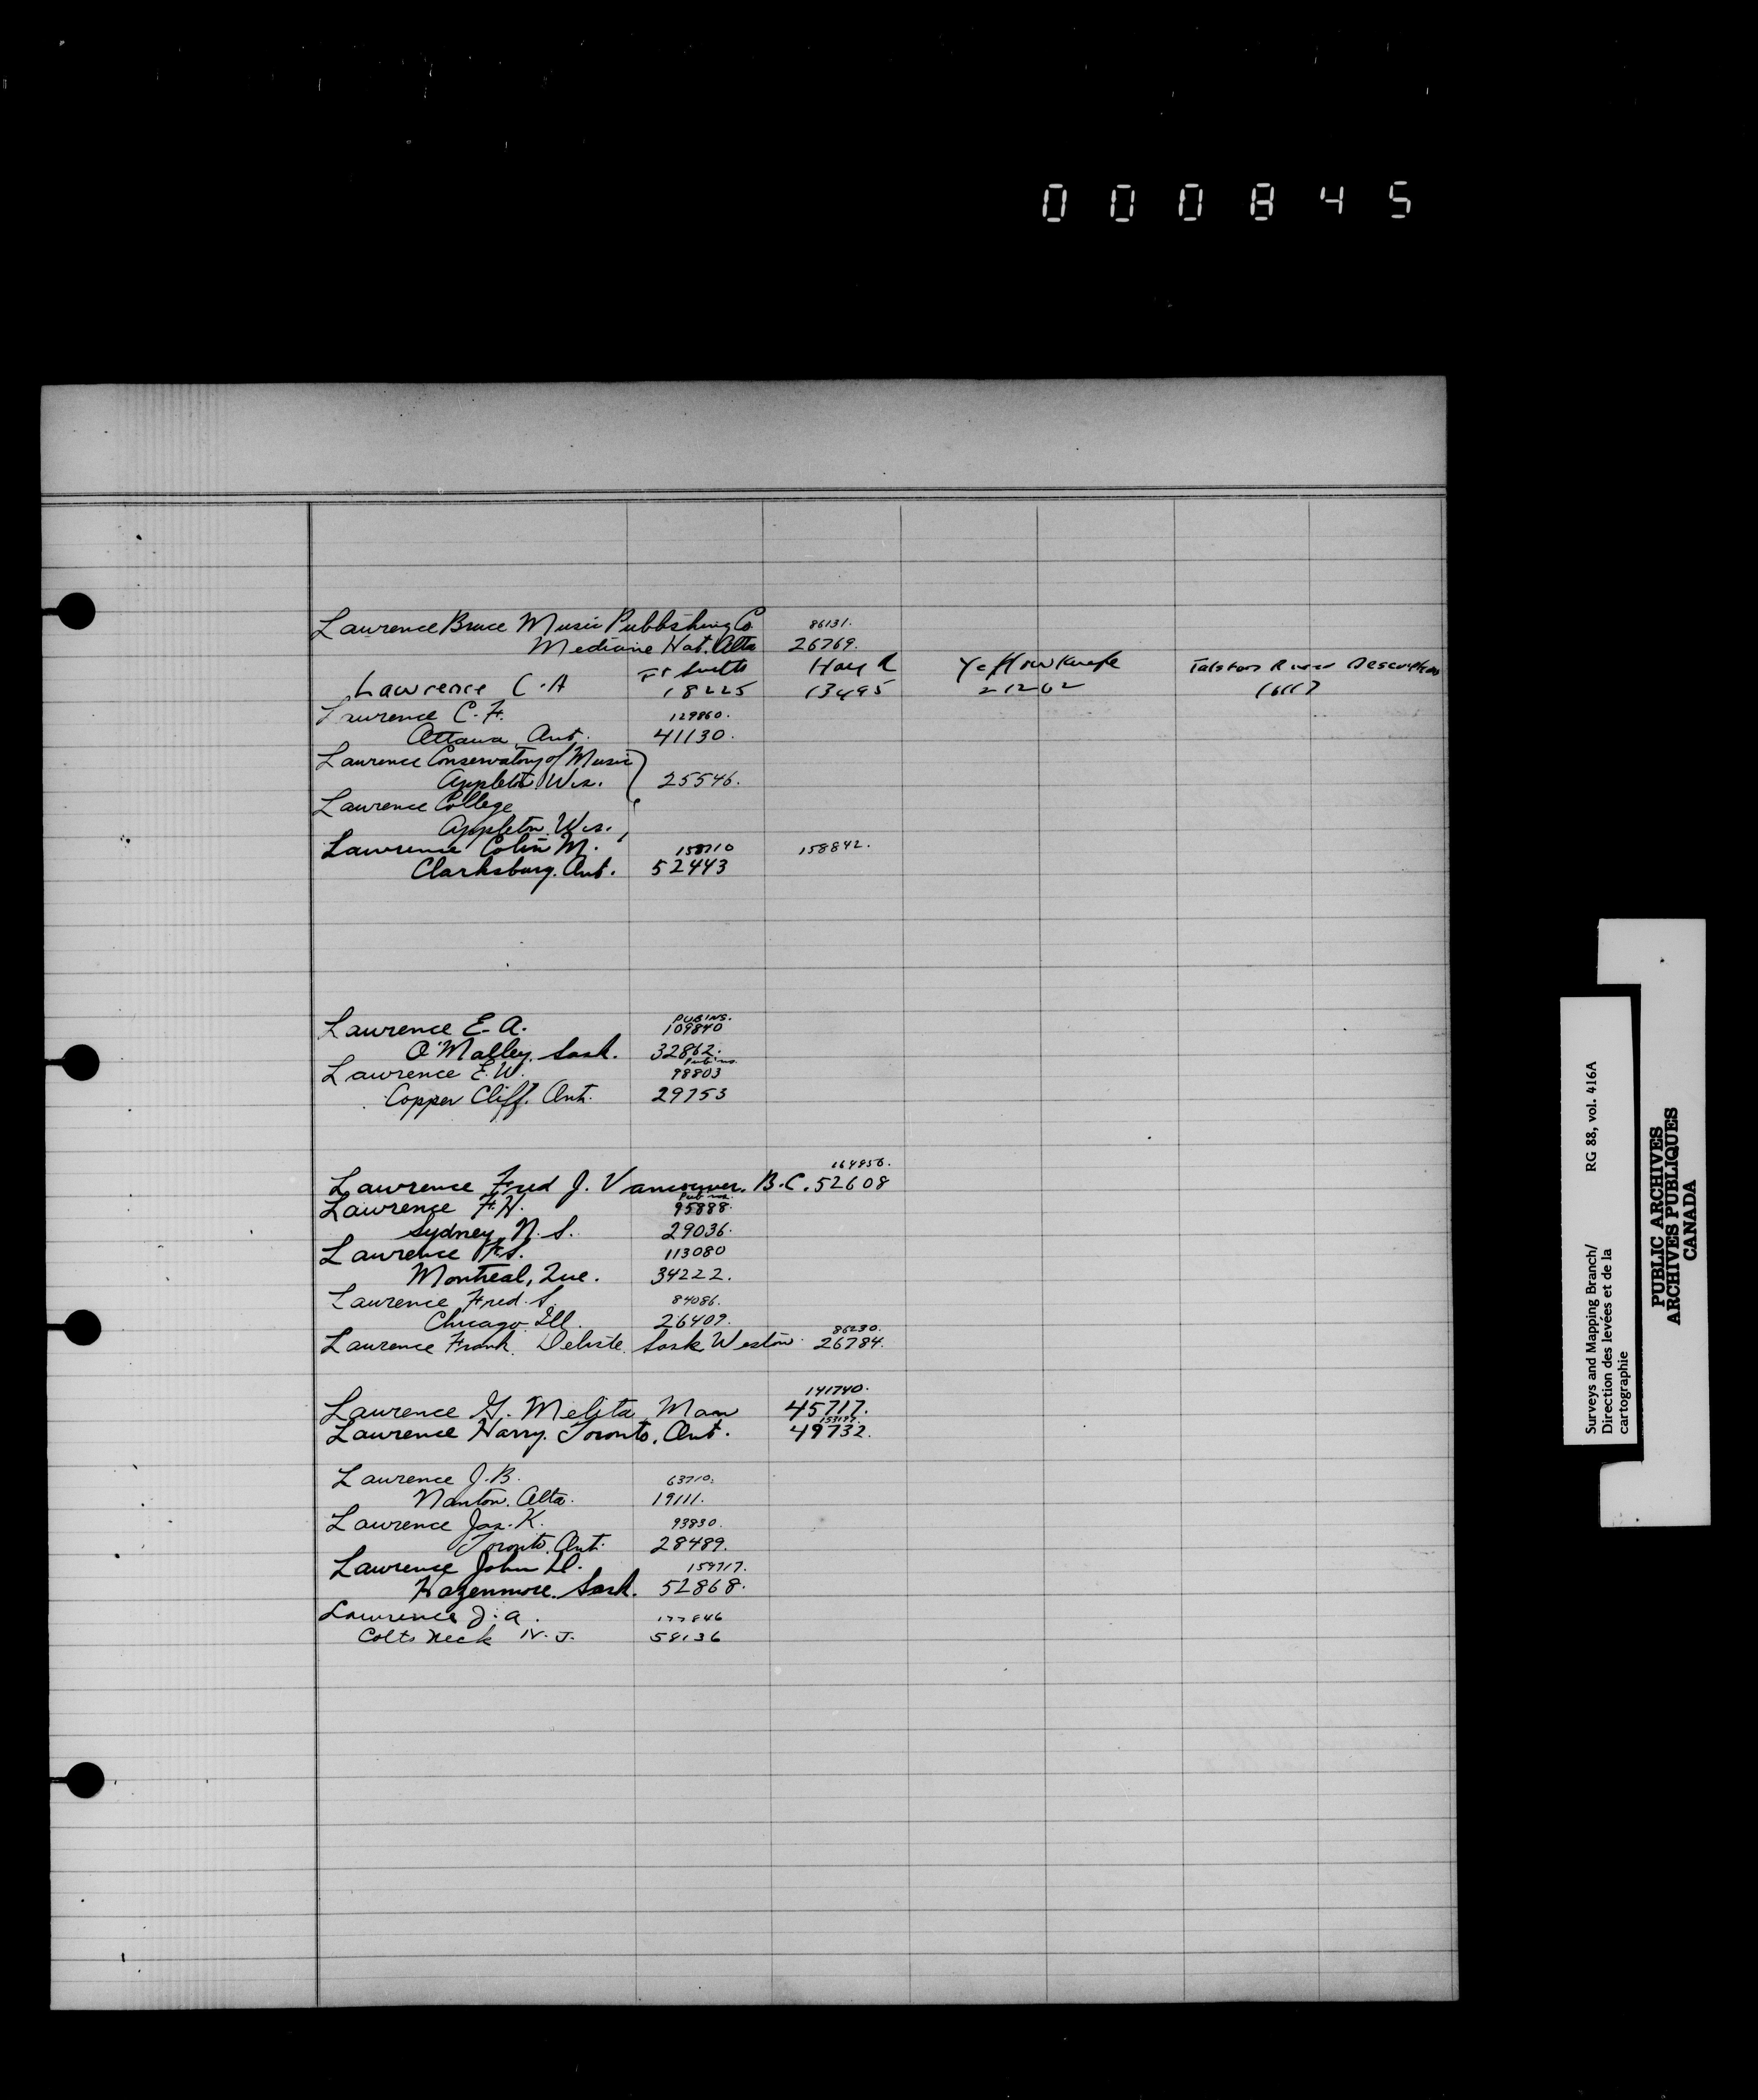 000845
Lawrence Bruce Music Publishing Co. 86131.
Medicine Hat. Alta 26769.
Ft Smith Hay R Yellowknife Talston River Description
Lawrence C.A 18225 13495 21202 16117
Lawrence C.F. 129860.
Ottawa, Ont. 41130.
Lawrence Conservatory of Music
Appleton Wis. 25546.
Lawrence College
Appleton. Wis.
Lawrence Colin M. 158710 158842.
Clarksburg. Ont. 52443
PUB'INS.
Lawrence E. A. 109840
O'Malley. Sask. 32862.
Pub'ns.
Lawrence E.W. 98803
Copper Cliff. Ont. 29753
164856.
Lawrence Fred J. Vancouver. B.C. 52608
Pub'ns.
Lawrence F.H. 95888.
Sydney, N.S. 29036.
Lawrence F.S. 113080
Montreal, Que. 34222.
Lawrence Fred. S. 84086.
Chicago Ill. 26409.
86230.
Lawrence Frank. Delisle. Sask Weston 26784.
141740.
Lawrence G. Melita Man 45717.
Lawrence Harry. Toronto. Ont. 49732.
Lawrence J.B. 63710.
Nanton. Alta. 19111.
Lawrence Jas. K. 93830.
Toronto. Ont. 28489.
Lawrence John D. 159717.
Hazenmore. Sask. 52868.
Lawrence J.A. 177846
Colts Neck N.J. 58136
Surveys and Mapping Branch/ RG 88, vol. 416A
Direction des levées et de la
cartographie
PUBLIC ARCHIVES
ARCHIVES PUBLIQUES
CANADA